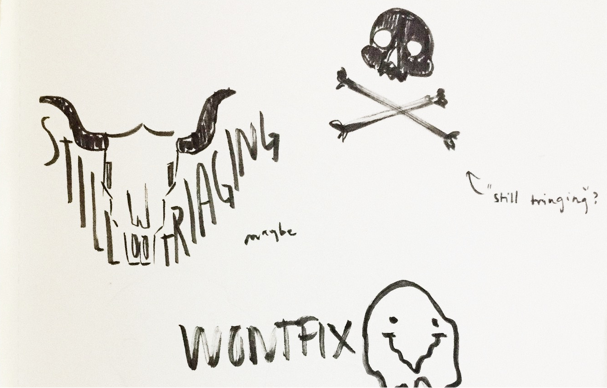 STILL TRIAGING
maybe
"still triaging"?
WONTFIX